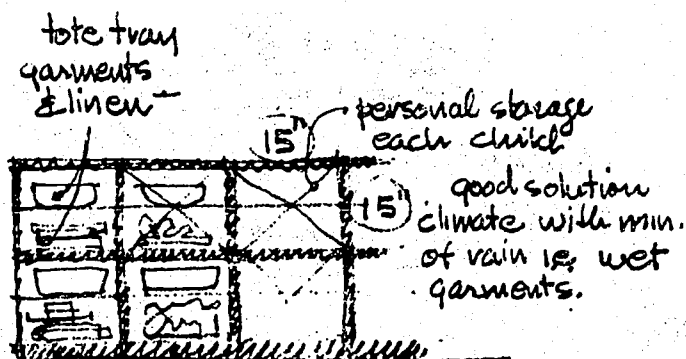 tote tray
garments
& linen
15"
personal storage
each child
15"
good solution
climate with min.
of rain ie, wet
garments.